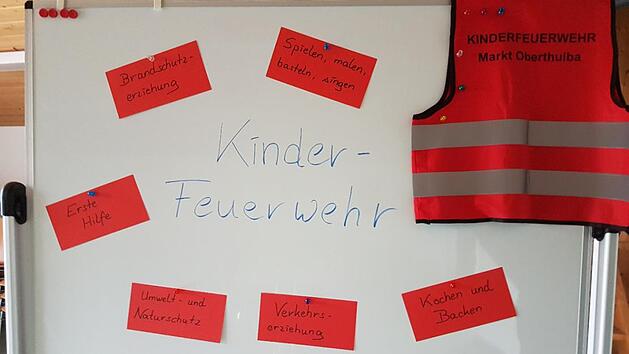 Brandschutz-
erziehung
Spielen, malen,
basteln, singen
KINDERFEUERWEHR
Markt Oberthulba
Kinder-
Feuerwehr
Erste
Hilfe
Umwelt- und
Naturschutz
Verkehrs-
erziehung
Kochen und
Backen